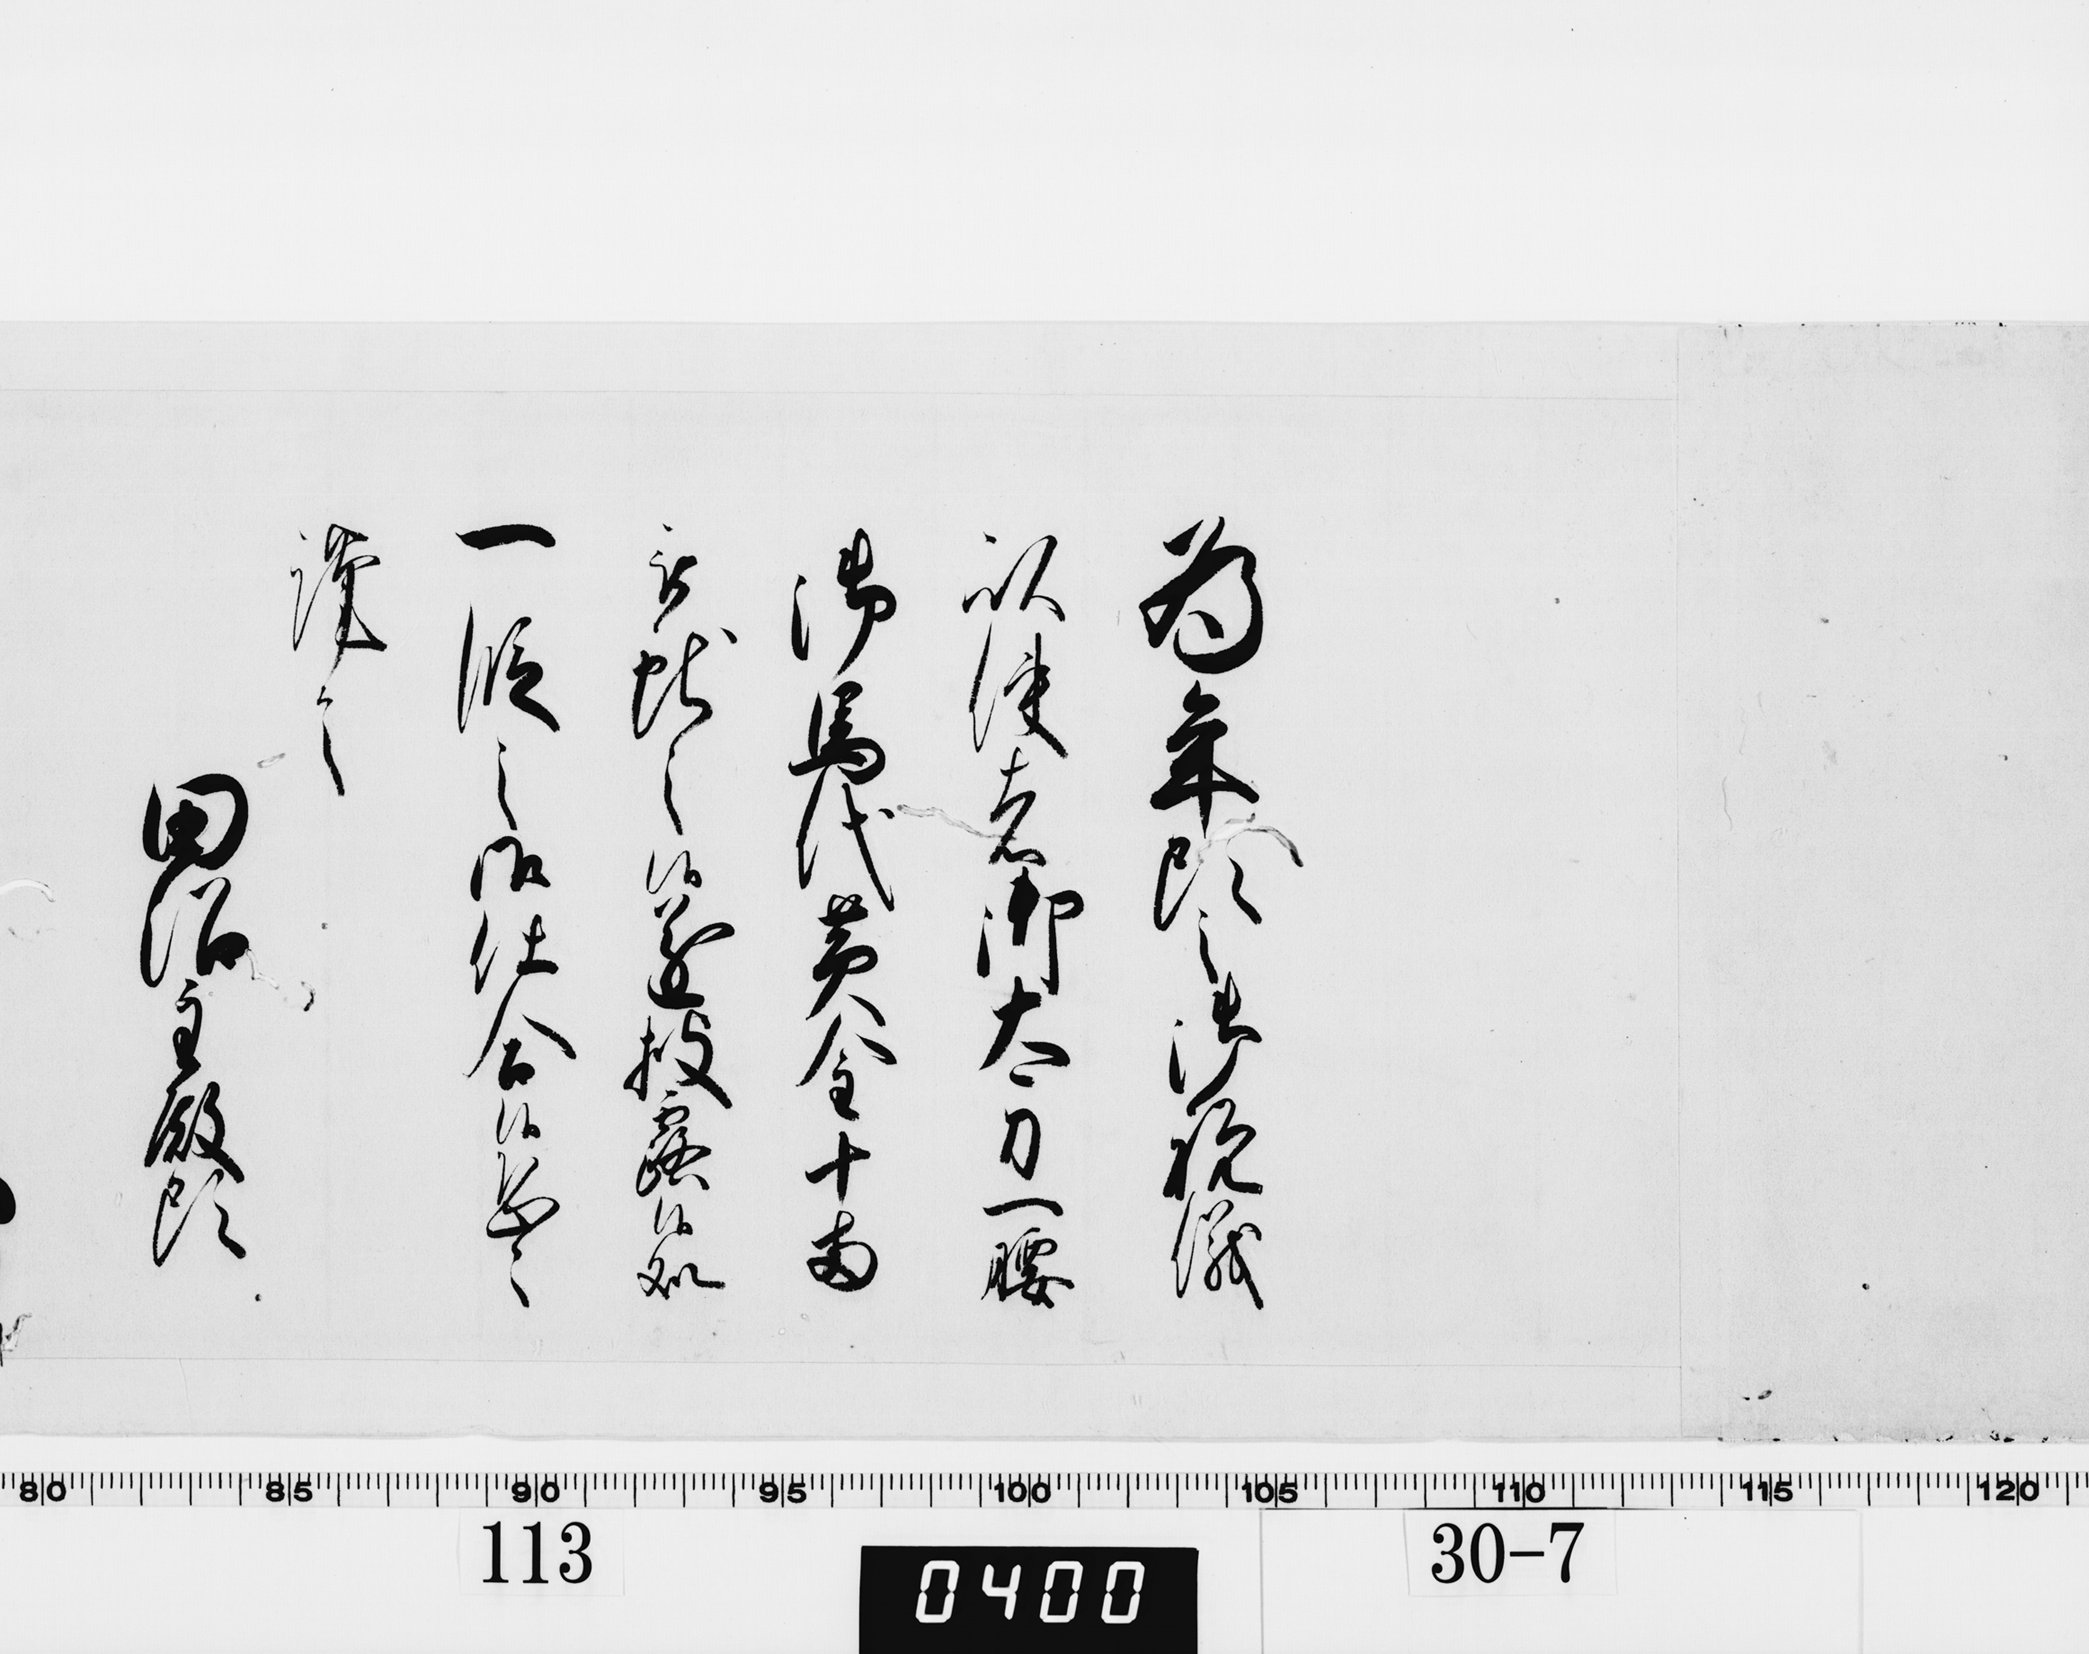 為年頭之御祝儀
以使者御太刀一腰
御馬代黄金十両
被献之候遂披露候処
一段之御仕合候恐々
謹言
田沼主殿頭
80 85 90 95 100 105 110 115 120
113
0400
30-7